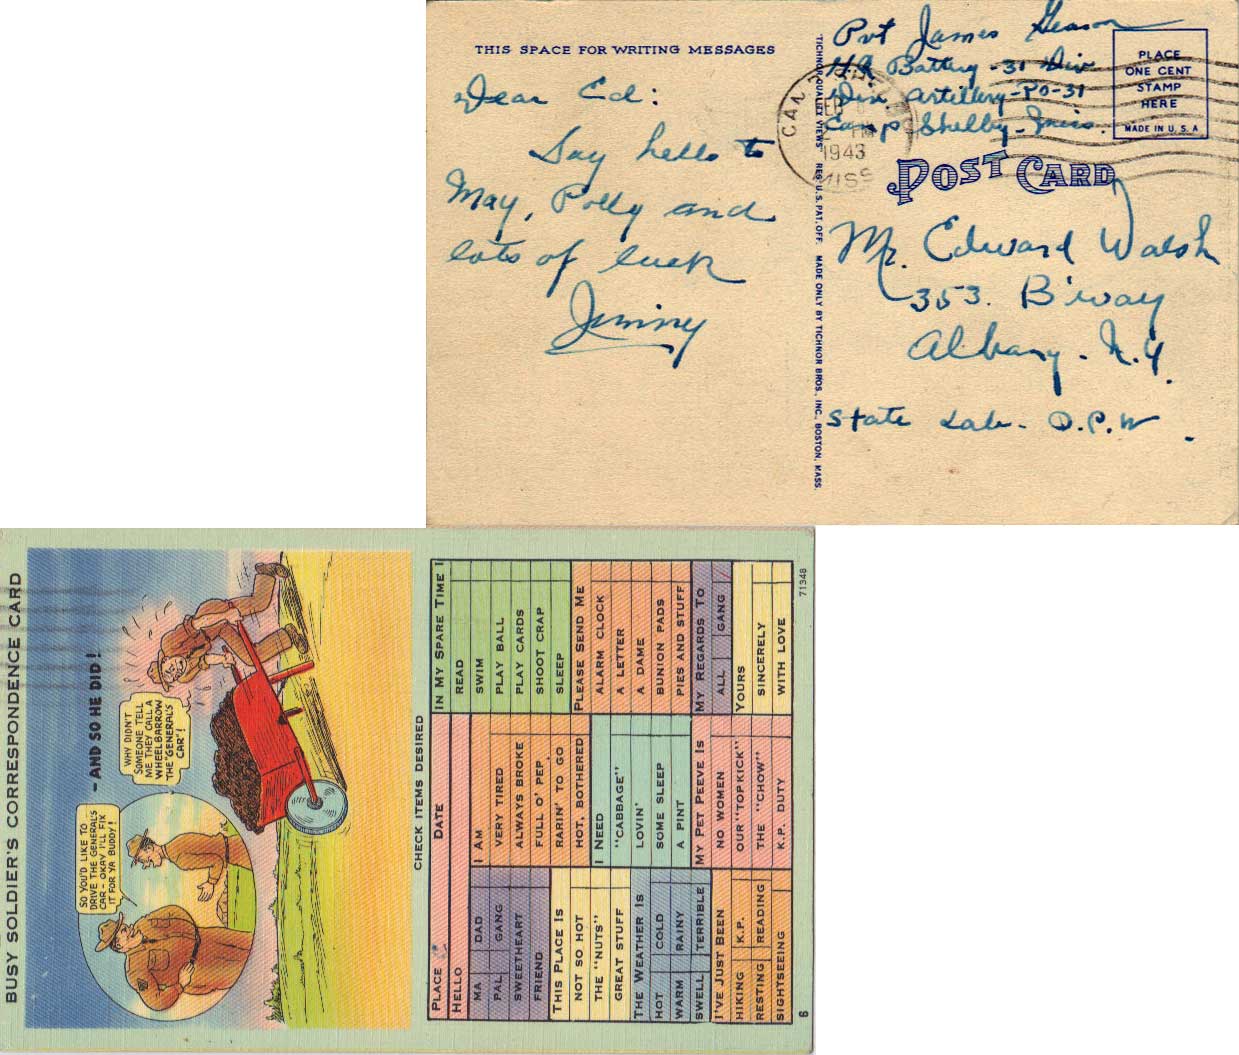 THIS SPACE FOR WRITING MESSAGES
Dear Ed:
Say hello to
May, Polly and
lots of luck
Jimmy
TICHNOR QUALITY VIEWS REG. U.S. PAT. OFF. MADE ONLY BY TICHNOR BROS., INC., BOSTON, MASS.
Pvt James Gleason
Hq Battery - 31 Div
Div Artillery - PO - 31
Camp Shelby - Miss.
1943
MISS
PLACE
ONE CENT
STAMP
HERE
MADE IN U.S.A
POST CARD
Mr. Edward Walsh
353. B'way
Albany - N.Y.
State Lab - D.P.W.
BUSY SOLDIER'S CORRESPONDENCE CARD
- AND SO HE DID!
SO YOU'D LIKE TO
DRIVE THE GENERAL'S
CAR - OKAY I'LL FIX
IT FOR YA BUDDY!
WHY DIDN'T
SOMEONE TELL
ME THEY CALL A
WHEELBARROW
THE "GENERAL'S
CAR"!
CHECK ITEMS DESIRED
PLACE DATE
HELLO
MA DAD
PAL GANG
SWEETHEART
FRIEND
THIS PLACE IS
NOT SO HOT
THE "NUTS"
GREAT STUFF
THE WEATHER IS
HOT COLD
WARM RAINY
SWELL TERRIBLE
I'VE JUST BEEN
HIKING K.P.
RESTING READING
SIGHTSEEING
I AM
VERY TIRED
ALWAYS BROKE
FULL O' PEP
RARIN' TO GO
HOT, BOTHERED
I NEED
"CABBAGE"
LOVIN'
SOME SLEEP
A PINT
MY PET PEEVE IS
NO WOMEN
OUR "TOPKICK"
THE "CHOW"
K.P. DUTY
IN MY SPARE TIME I
READ
SWIM
PLAY BALL
PLAY CARDS
SHOOT CRAP
SLEEP
PLEASE SEND ME
ALARM CLOCK
A LETTER
A DAME
BUNION PADS
PIES AND STUFF
MY REGARDS TO
ALL GANG
YOURS
SINCERELY
WITH LOVE
6
71348